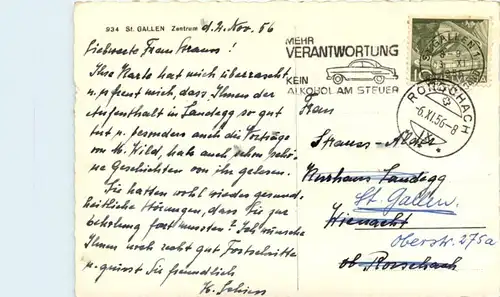 934 St. GALLEN Zentrum
d. 4. Nov. 56
Liebwerte Frau Strauss!
Ihre Karte hat mich überrascht
u. freut mich, dass Ihnen der
Aufenthalt in Landegg so gut
tut u. besonders auch die Vorträge
von H. Wild, hab auch schon
Geschichten von ihr gelesen.
Sie hatten wohl wieder gesund-
heitliche Störungen, dass Sie zur
Erholung fort mussten? Ich wünsche
Ihnen noch recht gut Fortschritte
u. grüsst Sie freundlich
MEHR
VERANTWORTUNG
KEIN
ALKOHOL AM STEUER
ST. GALLEN 1
RORSCHACH
-6.XI.56-8
Frau
Strauss-
Kurhaus Landegg
St. Gallen.
Wienacht
Oberstr. 275a
ob Rorschach